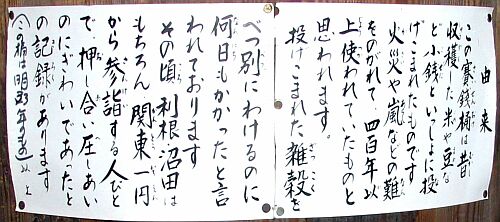 由来
この賽銭桶は昔
収穫した米や豆な
ど小銭といっしょに投
げこまれたものです
火災や嵐などの難
をのがれて、四百年以
上使われていたものと
思われます。
投げこまれた雑穀を
ざっこく
べつ別にわけるのに
何日もかかったと言
われております
その頃利根沼田は
もちろん関東一円
から参詣する人びと
で押し合い圧しあい
のにぎわいであたと
の記録があります